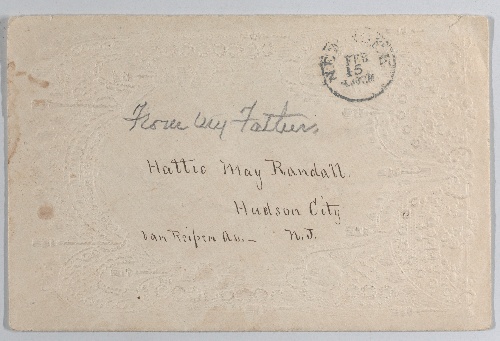 NEW YORK
FEB
15
From my Father.
Hattie May Randall.
Hudson City
Van Reipen Av. - N.J.